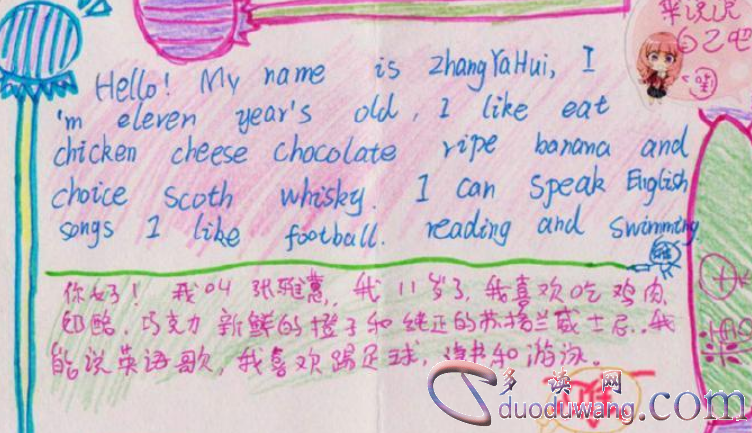 来说说
自己吧
Hello! My name is zhangYaHui, I
'm eleven year's old, I like eat
chicken cheese chocolate ripe banana and
choice scoth whisky. I can speak English
songs I like football. reading and swimming
你好！我叫张雅惠，我11岁了，我喜欢吃鸡肉
奶酪．巧克力新鲜的橙子和纯正的苏格兰威士忌．我
能说英语歌，我喜欢踢足球，读书和游泳．
多读网
duoduwang.com